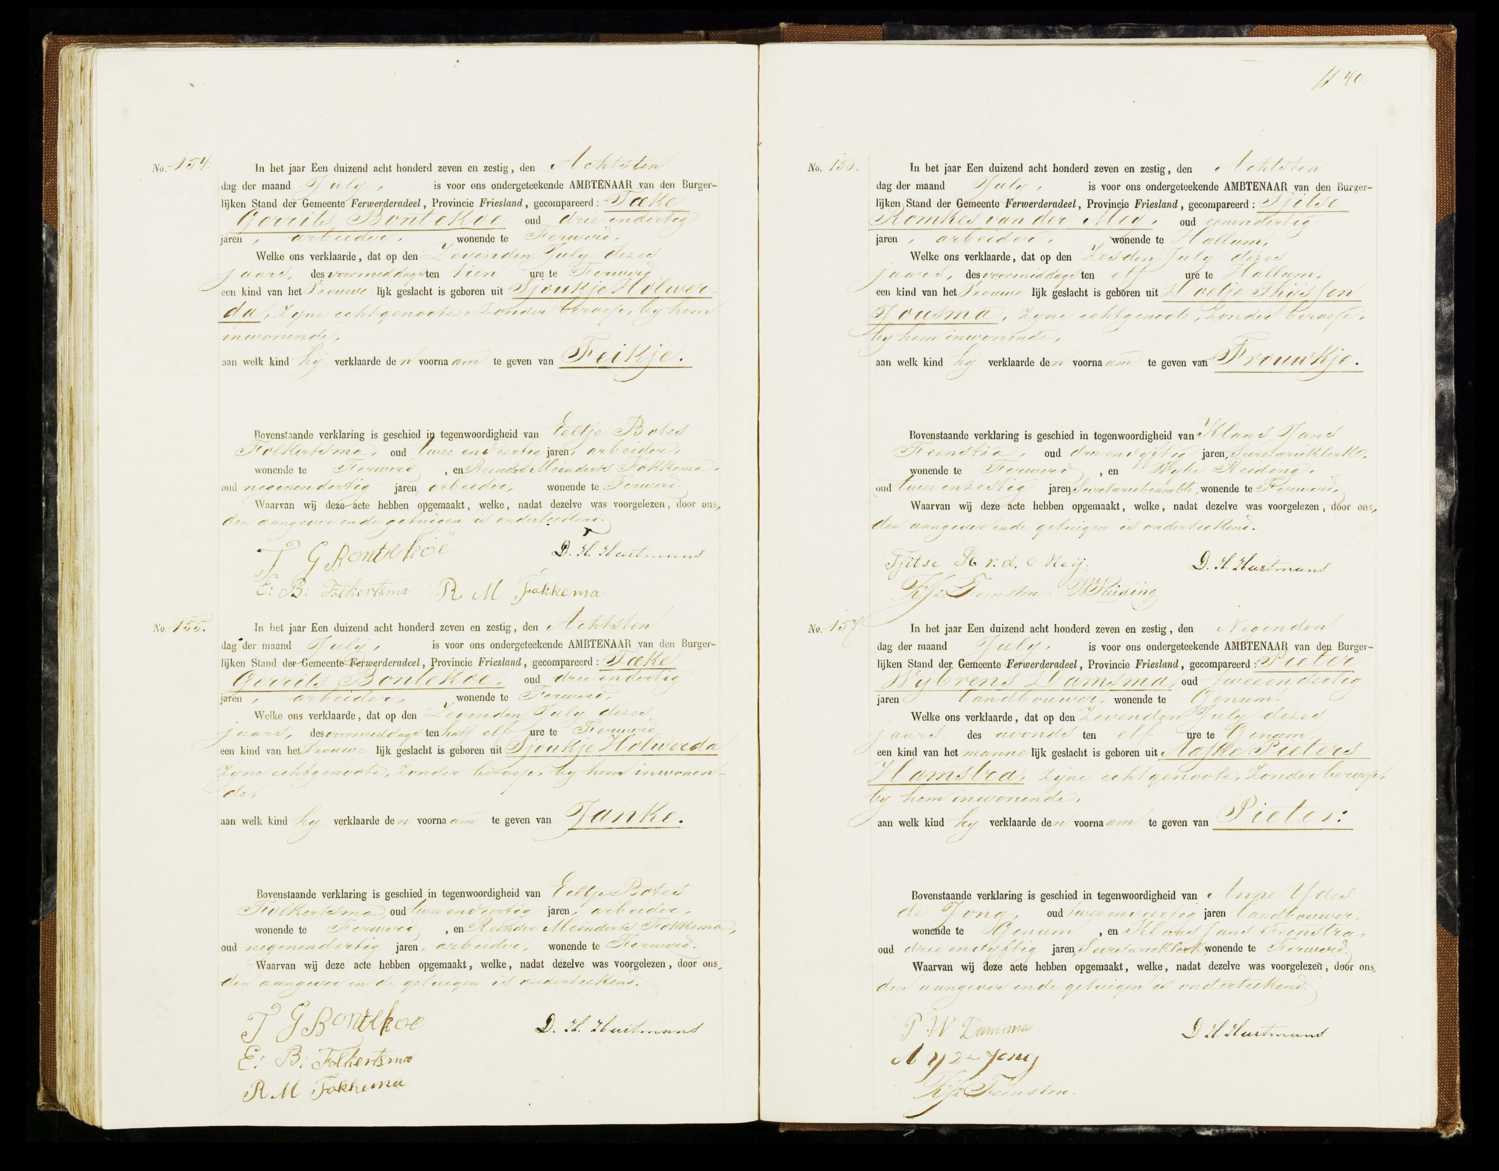 40
No. 154.
In het jaar Een duizend acht honderd zeven en zestig, den Achtsten
dag der maand July, is voor ons ondergeteekende AMBTENAAR van den Burger-
lijken Stand der Gemeente Ferwerderadeel, Provincie Friesland, gecompareerd: Tæke
Gerrits Bontekoe oud drie en dertig
jaren, arbeider, wonende te Ferwerd.
Welke ons verklaarde, dat op den Zevenden July dezes
jaars, des voormiddags ten tien ure te Ferwerd
een kind van het Vrouwelijk geslacht is geboren uit Sjoukje Holwer-
da, zyne echtgenoote, zonder beroep, by hem
inwonende,
aan welk kind hy verklaarde den voornaam te geven van Feikje.
Bovenstaande verklaring is geschied in tegenwoordigheid van Eeltje Botes
Folkertsma, oud twee en veertig jaren, arbeider,
wonende te Ferwerd, en Reinder Meinderts Fokkema,
oud negenendertig jaren, arbeider, wonende te Ferwerd.
Waarvan wij deze acte hebben opgemaakt, welke, nadat dezelve was voorgelezen, door ons,
den aangever en de getuigen is onderteekend.
T G Bontekoe D. H. Hartmans
E: B: Folkertsma R M Fokkema
No. 155.
In het jaar Een duizend acht honderd zeven en zestig, den Achtsten
dag der maand July, is voor ons ondergeteekende AMBTENAAR van den Burger-
lijken Stand der Gemeente Ferwerderadeel, Provincie Friesland, gecompareerd: Tæke
Gerrits Bontekoe, oud drie en dertig
jaren, arbeider, wonende te Ferwerd,
Welke ons verklaarde, dat op den Zevenden July dezes
jaars, des voormiddags ten half elf ure te Ferwerd
een kind van het Vrouwelijk geslacht is geboren uit Sjoukje Holwerda
zyne echtgenoote, zonder beroep, by hem inwonen-
de,
aan welk kind hy verklaarde den voornaam te geven van Janke.
Bovenstaande verklaring is geschied in tegenwoordigheid van Eeltje Botes
Folkertsma, oud twee en veertig jaren, arbeider,
wonende te Ferwerd, en Reinder Meinderts Fokkema,
oud negenendertig jaren, arbeider, wonende te Ferwerd.
Waarvan wij deze acte hebben opgemaakt, welke, nadat dezelve was voorgelezen, door ons,
den aangever en de getuigen is onderteekend.
T G Bontekoe D. H. Hartmans
E: B: Folkertsma
R M Fokkema
No. 156.
In het jaar Een duizend acht honderd zeven en zestig, den Achtsten
dag der maand July, is voor ons ondergeteekende AMBTENAAR van den Burger-
lijken Stand der Gemeente Ferwerderadeel, Provincie Friesland, gecompareerd: Tjitse
Romkes van der Meij, oud eenendertig
jaren, arbeider, wonende te Hallum,
Welke ons verklaarde, dat op den Zesden July dezes
jaars, des voormiddags ten elf ure te Hallum,
een kind van het Vrouwelijk geslacht is geboren uit Thijssen
Jousma, zyne echtgenoote, zonder beroep,
by hem inwonende,
aan welk kind hy verklaarde den voornaam te geven van Frouwkje.
Bovenstaande verklaring is geschied in tegenwoordigheid van Klaas Jans
Feenstra, oud drieenvyftig jaren, Secretarieklerk,
wonende te Ferwerd, en Reiding,
oud twee en zestig jaren, wonende te Ferwerd,
Waarvan wij deze acte hebben opgemaakt, welke, nadat dezelve was voorgelezen, door ons,
den aangever en de getuigen is onderteekend.
Tjitse R v. d. Meij. D. H. Hartmans
K Js Feenstra Reiding
No. 157.
In het jaar Een duizend acht honderd zeven en zestig, den Negenden
dag der maand July, is voor ons ondergeteekende AMBTENAAR van den Burger-
lijken Stand der Gemeente Ferwerderadeel, Provincie Friesland, gecompareerd: Pieter
Wybrens Damsma, oud tweeendertig
jaren Landbouwer, wonende te Genum.
Welke ons verklaarde, dat op den Zevenden July dezes
jaars des avonds ten elf ure te Genum
een kind van het mannelijk geslacht is geboren uit Pieters
Hamstra, zyne echtgenoote, zonder beroep,
by hem inwonende,
aan welk kind hy verklaarde den voornaam te geven van Pieter:
Bovenstaande verklaring is geschied in tegenwoordigheid van Anne Ydes
de Jong, oud jaren Landbouwer,
wonende te Genum, en Klaas Jans Feenstra,
oud drie en vyftig jaren, Secretarieklerk, wonende te Ferwerd
Waarvan wij deze acte hebben opgemaakt, welke, nadat dezelve was voorgelezen, door ons,
den aangever en de getuigen is onderteekend.
P W Damsma D H Hartmans
A Y de Jong
K Js Feenstra